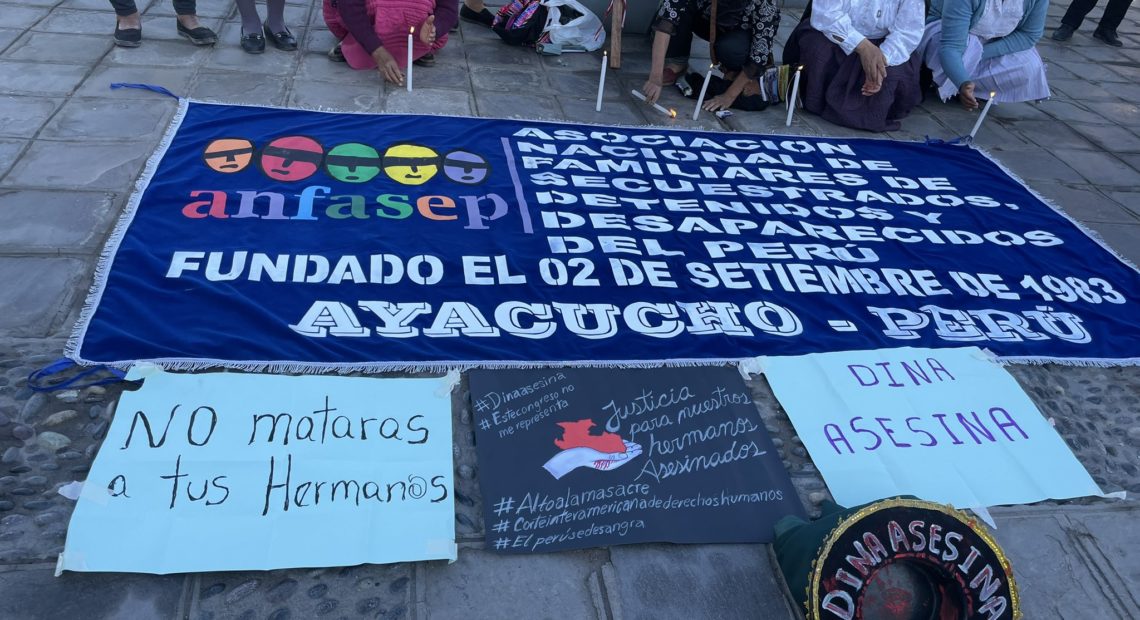 anfasep
ASOCIACIÓN
NACIONAL DE
FAMILIARES DE
SECUESTRADOS,
DETENIDOS Y
DESAPARECIDOS
DEL PERÚ
FUNDADO EL 02 DE SETIEMBRE DE 1983
AYACUCHO - PERÚ
NO mataras
a tus Hermanos
#Dinaasesina
#Estecongreso no
me representa
Justicia
para nuestros
hermanos
Asesinados
#Altoalamasacre
#Corteinteramericanadederechoshumanos
#El perúsedesangra
DINA
ASESINA
DINA ASESINA